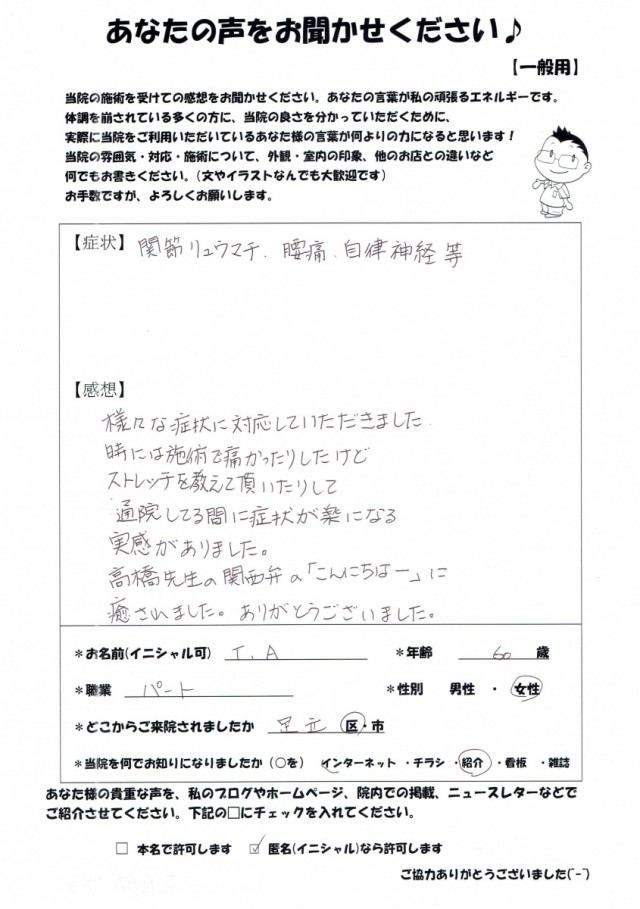 あなたの声をお聞かせください♪
【一般用】
当院の施術を受けての感想をお聞かせください。あなたの言葉が私の頑張るエネルギーです。
体調を崩されている多くの方に、当院の良さを分かっていただくために、
実際に当院をご利用いただいているあなた様の言葉が何よりの力になると思います！
当院の雰囲気・対応・施術について、外観・室内の印象、他のお店との違いなど
何でもお書きください。（文やイラストなんでも大歓迎です）
お手数ですが、よろしくお願いします。
【症状】 関節リュウマチ、腰痛、自律神経等
【感想】
様々な症状に対応していただきました
時には施術で痛かったりしたけど
ストレッチを教えて頂いたりして
通院してる間に症状が楽になる
実感がありました。
高橋先生の関西弁の「こんにちはー」に
癒されました。ありがとうございました。
＊お名前(イニシャル可) T.A ＊年齢 60 歳
＊職業 パート ＊性別 男性 ・ 女性
＊どこからご来院されましたか 足立 区・市
＊当院を何でお知りになりましたか（○を） インターネット ・チラシ ・紹介 ・看板 ・雑誌
あなた様の貴重な声を、私のブログやホームページ、院内での掲載、ニュースレターなどで
ご紹介させてください。下記の□にチェックを入れてください。
□ 本名で許可します ☑ 匿名(イニシャル)なら許可します
ご協力ありがとうございました(^-^)